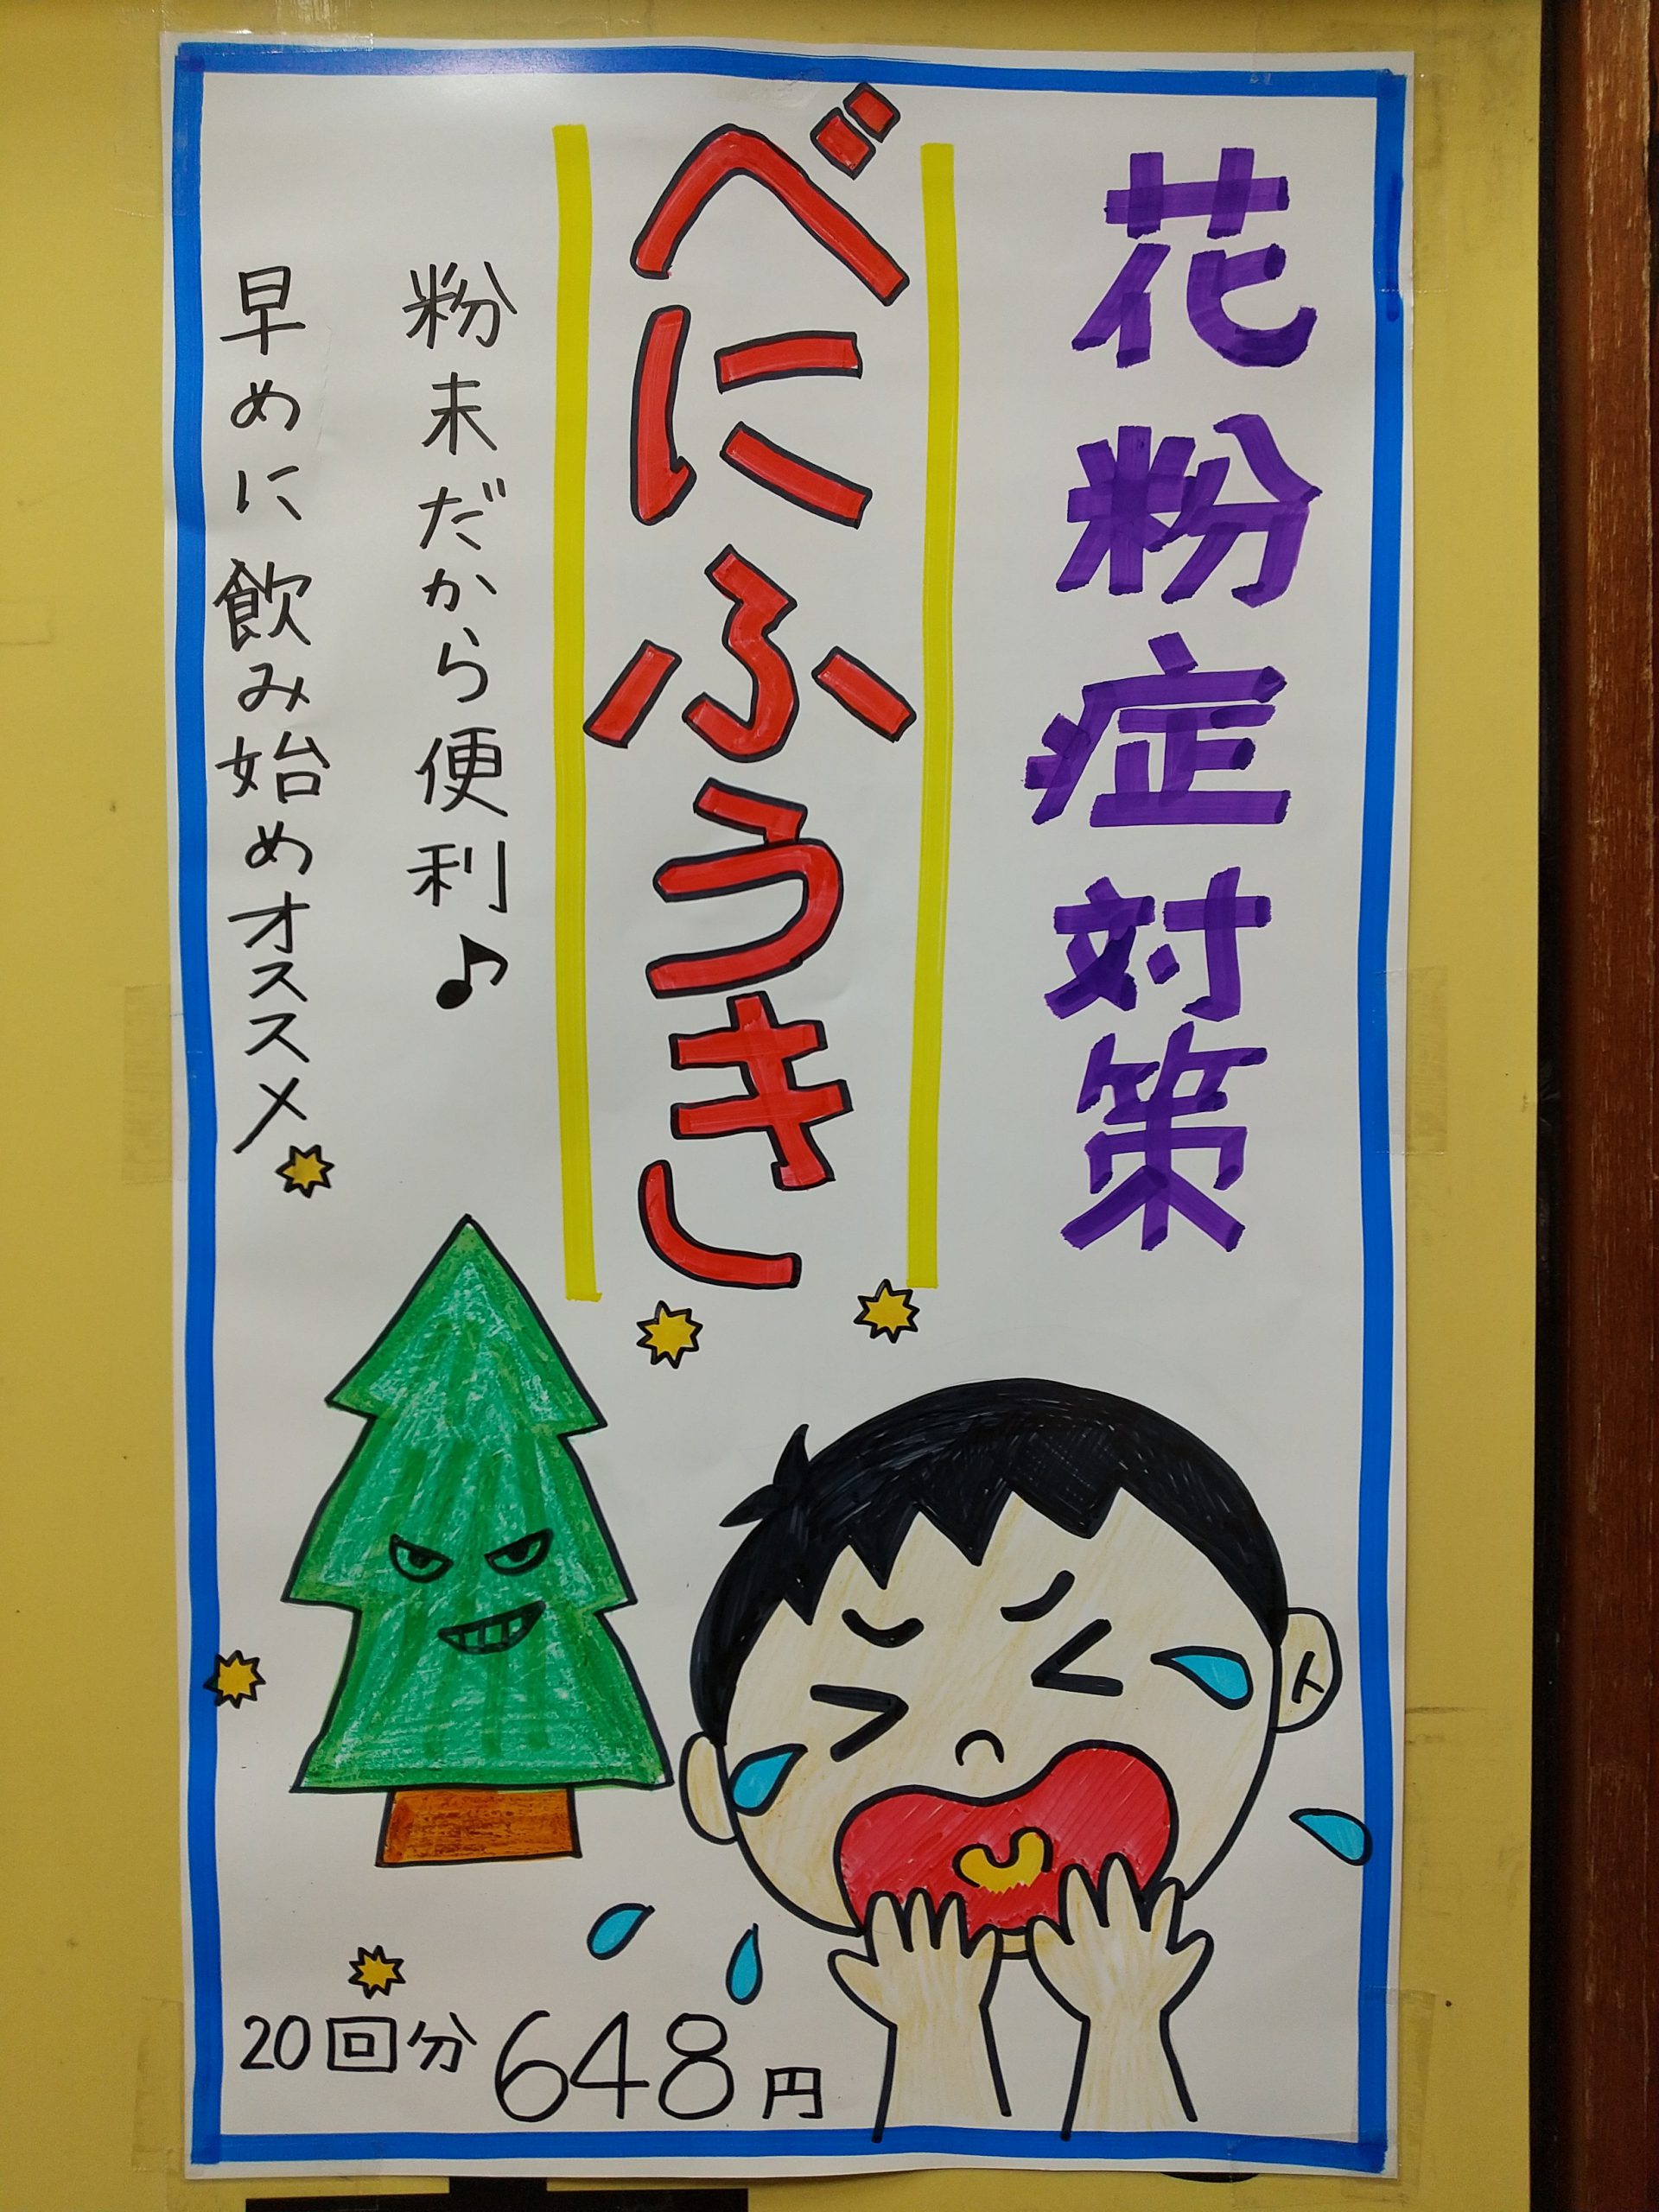 花粉症対策
べにふうき
粉末だから便利♪
早めに飲み始めオススメ
20回分648円